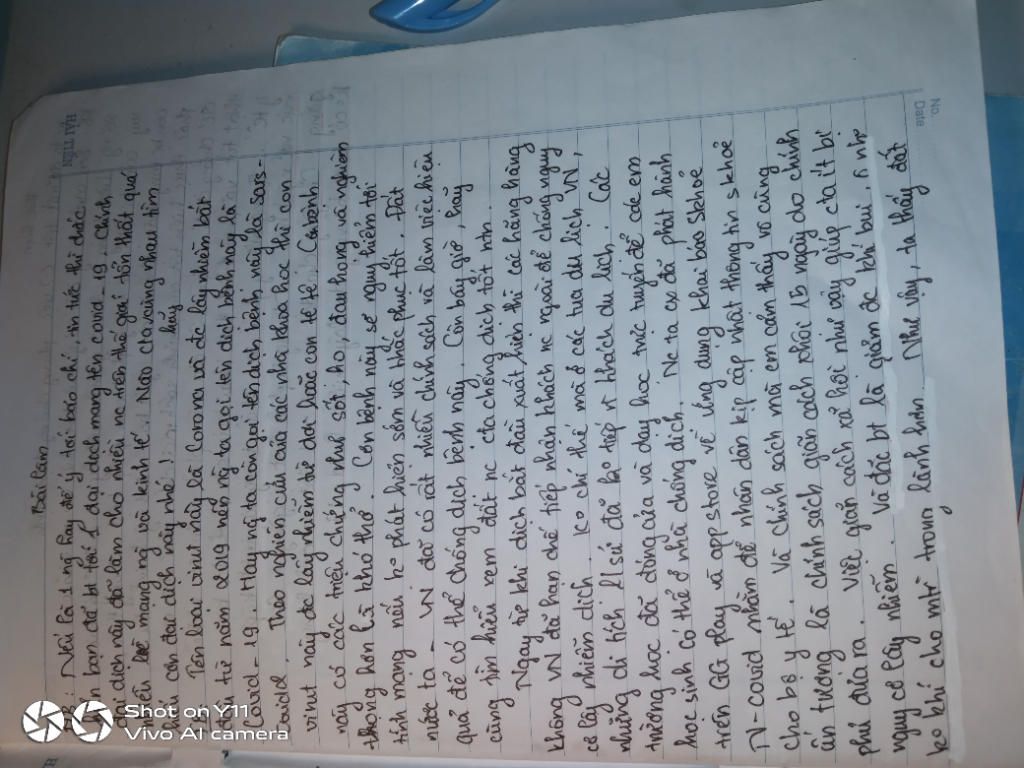 Bài làm
Nếu là 1 ng hay để ý tới báo chí, tin tức thì chắc
hẳn bạn đã bt tới 1 đại dịch mang tên covid_19. Chính
đại dịch này đã làm cho nhiều nc trên thế giới tổn thất quá
nhiều về mạng ng và kinh tế. Nào cta cùng nhau tìm
hiểu cơn đại dịch này nhé! hãy
Tên loại virut này là Corona và đc lây nhiễm bắt
đầu từ năm 2019 nên ng ta gọi tên dịch bệnh này là
Covid-19. Hay ng ta còn gọi tên dịch bệnh này là Sars-
Covid. Theo nghiên cứu của các nhà khoa học thì con
virut này đc lây nhiễm từ dơi hoặc con tê tê. Cănbệnh
này có các triệu chứng như sốt, ho, đau họng và nghiêm
thọng hơn là khó thở. Căn bệnh này sẽ nguy hiểm tới
tính mạng nếu ko phát hiện sớm và khắc phục tốt. Đất
nước ta - VN đã có rất nhiều chính sách và làm việc hiệu
quả để có thể chống dịch bệnh này. Còn bây giờ, hãy
cùng tìm hiểu xem đất nc cta chống dịch tốt ntn.
Ngay tập khi dịch bắt đầu xuất hiện thì các hãng hàng
không VN đã hạn chế tiếp nhận khách nc ngoài để chống nguy
cơ lây nhiễm dịch. Ko chỉ thế mà ở các tua du lịch VN,
những di tích lị sử đã ko tiếp nx khách du lịch. Các
trường học đã đóng cửa và dạy học trức truyến để các em
học sinh có thể ở nhà chống dịch. Nc ta cx đã phát hành
trên GG play và app store về ứng dụng khai báo Skhoẻ
TV-covid nhằm để nhân dân kịp cập nhật thông tin skhoẻ
cho bộ y tế. Và chính sách mà em cảm thấy vô cùng
ấn tượng là chính sách giãn cách xhôi 15 ngày do chính
phủ đưa ra. Việc giãn cách xã hội như vậy giúp cta ít bị
nguy cơ lây nhiễm. Và đặc bt là giảm đc khí bụi, ô nhĩ
ko khí cho mtr trong lành hơn. Như vậy, ta thấy đất
No.
Date
HẢI TIẾN
Shot on Y11
Vivo AI camera